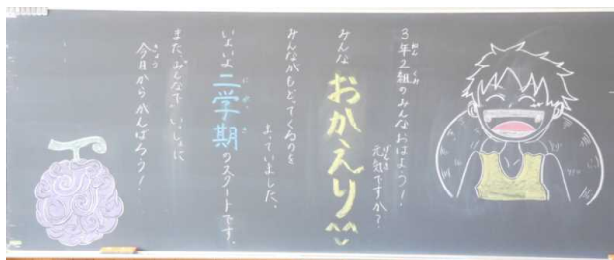 3年2組のみんなおはよう!
元気ですか?
みんな おかえり^^
みんながもどってくるのを
まっていました。
いよいよ 二学期のスタートです。
また、みんなでいっしょに
今日からがんばろう!